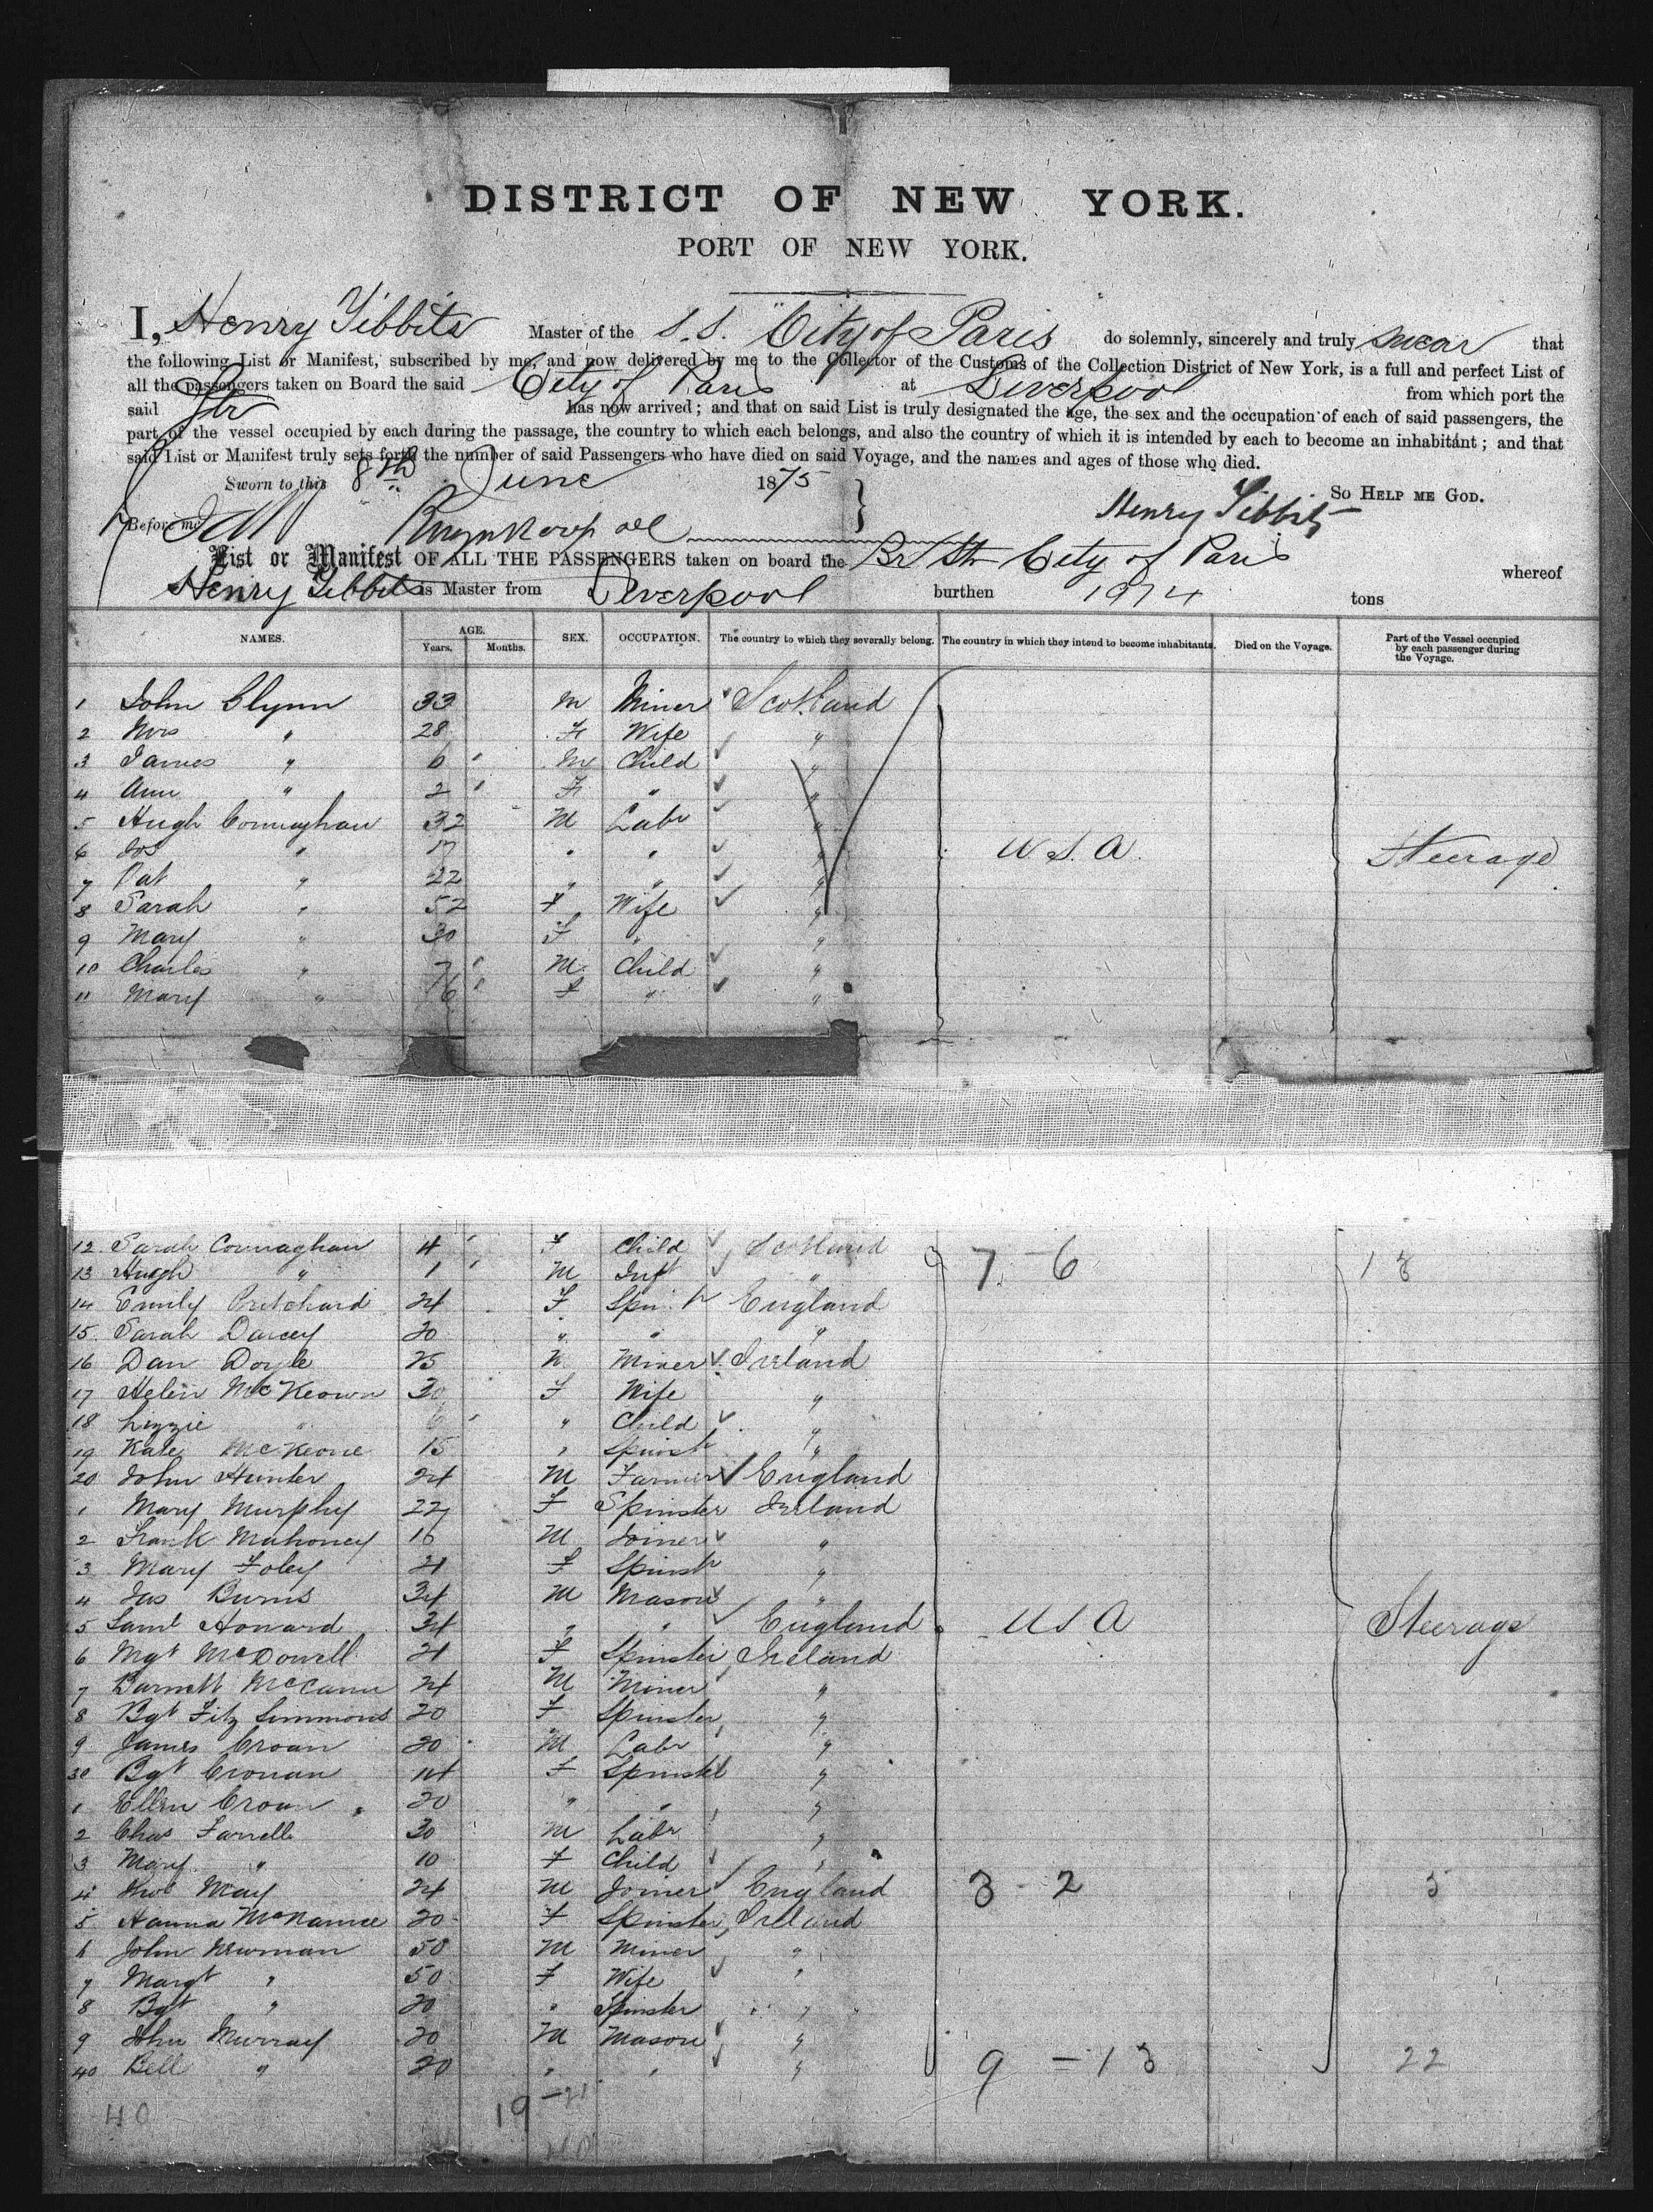 DISTRICT OF NEW YORK.
PORT OF NEW YORK.
I, Henry Tibbits Master of the S.S. "City of Paris do solemnly, sincerely and truly swear that
the following List or Manifest, subscribed by me, and now delivered by me to the Collector of the Customs of the Collection District of New York, is a full and perfect List of
all the passengers taken on Board the said City of Paris at Liverpool from which port the
said Str has now arrived; and that on said List is truly designated the age, the sex and the occupation of each of said passengers, the
part of the vessel occupied by each during the passage, the country to which each belongs, and also the country of which it is intended by each to become an inhabitant; and that
said List or Manifest truly sets forth the number of said Passengers who have died on said Voyage, and the names and ages of those who died.
Sworn to this 8th June 1875 So Help me God.
Before me Henry Tibbits
List or Manifest OF ALL THE PASSENGERS taken on board the Br Str City of Paris whereof
Henry Tibbits is Master from Liverpool burthen 1974 tons
NAMES. AGE. Years. Months. SEX. OCCUPATION. The country to which they severally belong. The country in which they intend to become inhabitants. Died on the Voyage. Part of the Vessel occupied by each passenger during the Voyage.
1 John Glynn 33 M Miner Scotland
2 Mrs " 28 F Wife "
3 James " 6 M Child "
4 Ann " 2 F " "
5 Hugh Connaghan 32 M Labr "
6 Jos " 17 " " " U.S.A. Steerage
7 Pat " 22 " " "
8 Sarah " 52 F Wife "
9 Mary " 30 F " "
10 Charles " 7 M Child "
11 Mary " 6 F " "
12 Sarah Connaghan 4 F Child Scotland 7 - 6 13
13 Hugh " 1 M Inft "
14 Emily Pritchard 24 F Spinr England
15 Sarah Darcey 20 " " "
16 Dan Doyle 25 M Miner Ireland
17 Helen McKeown 30 F Wife "
18 Lizzie " 6 " Child "
19 Kate McKeone 15 " Spinstr "
20 John Hunter 24 M Farmer England
1 Mary Murphy 22 F Spinster Ireland
2 Frank Mahoney 16 M Joiner "
3 Mary Foley 21 F Spinstr "
4 Jas Burns 34 M Mason "
5 Saml Howard 34 " " England U S A Steerage
6 Mgt McDowell 21 F Spinster Ireland
7 Barnett McCann 24 M Miner "
8 Bgt Fitz Simmons 20 F Spinster "
9 James Croan 20 M Labr "
30 Bgt Cronan 14 F Spinster "
1 Ellen Croan 20 " " "
2 Chas Farrell 30 M Labr "
3 Mary " 10 F Child "
4 May 24 M Joiner England 3 - 2 5
5 Hanna McNamee 20 F Spinster Ireland
6 John Newman 50 M Miner "
7 Margt " 50 F Wife "
8 Bgt " 20 " Spinster "
9 John Murray 20 M Mason "
40 Bell " 20 " " " 9 - 13 22
40 19 - 21
40